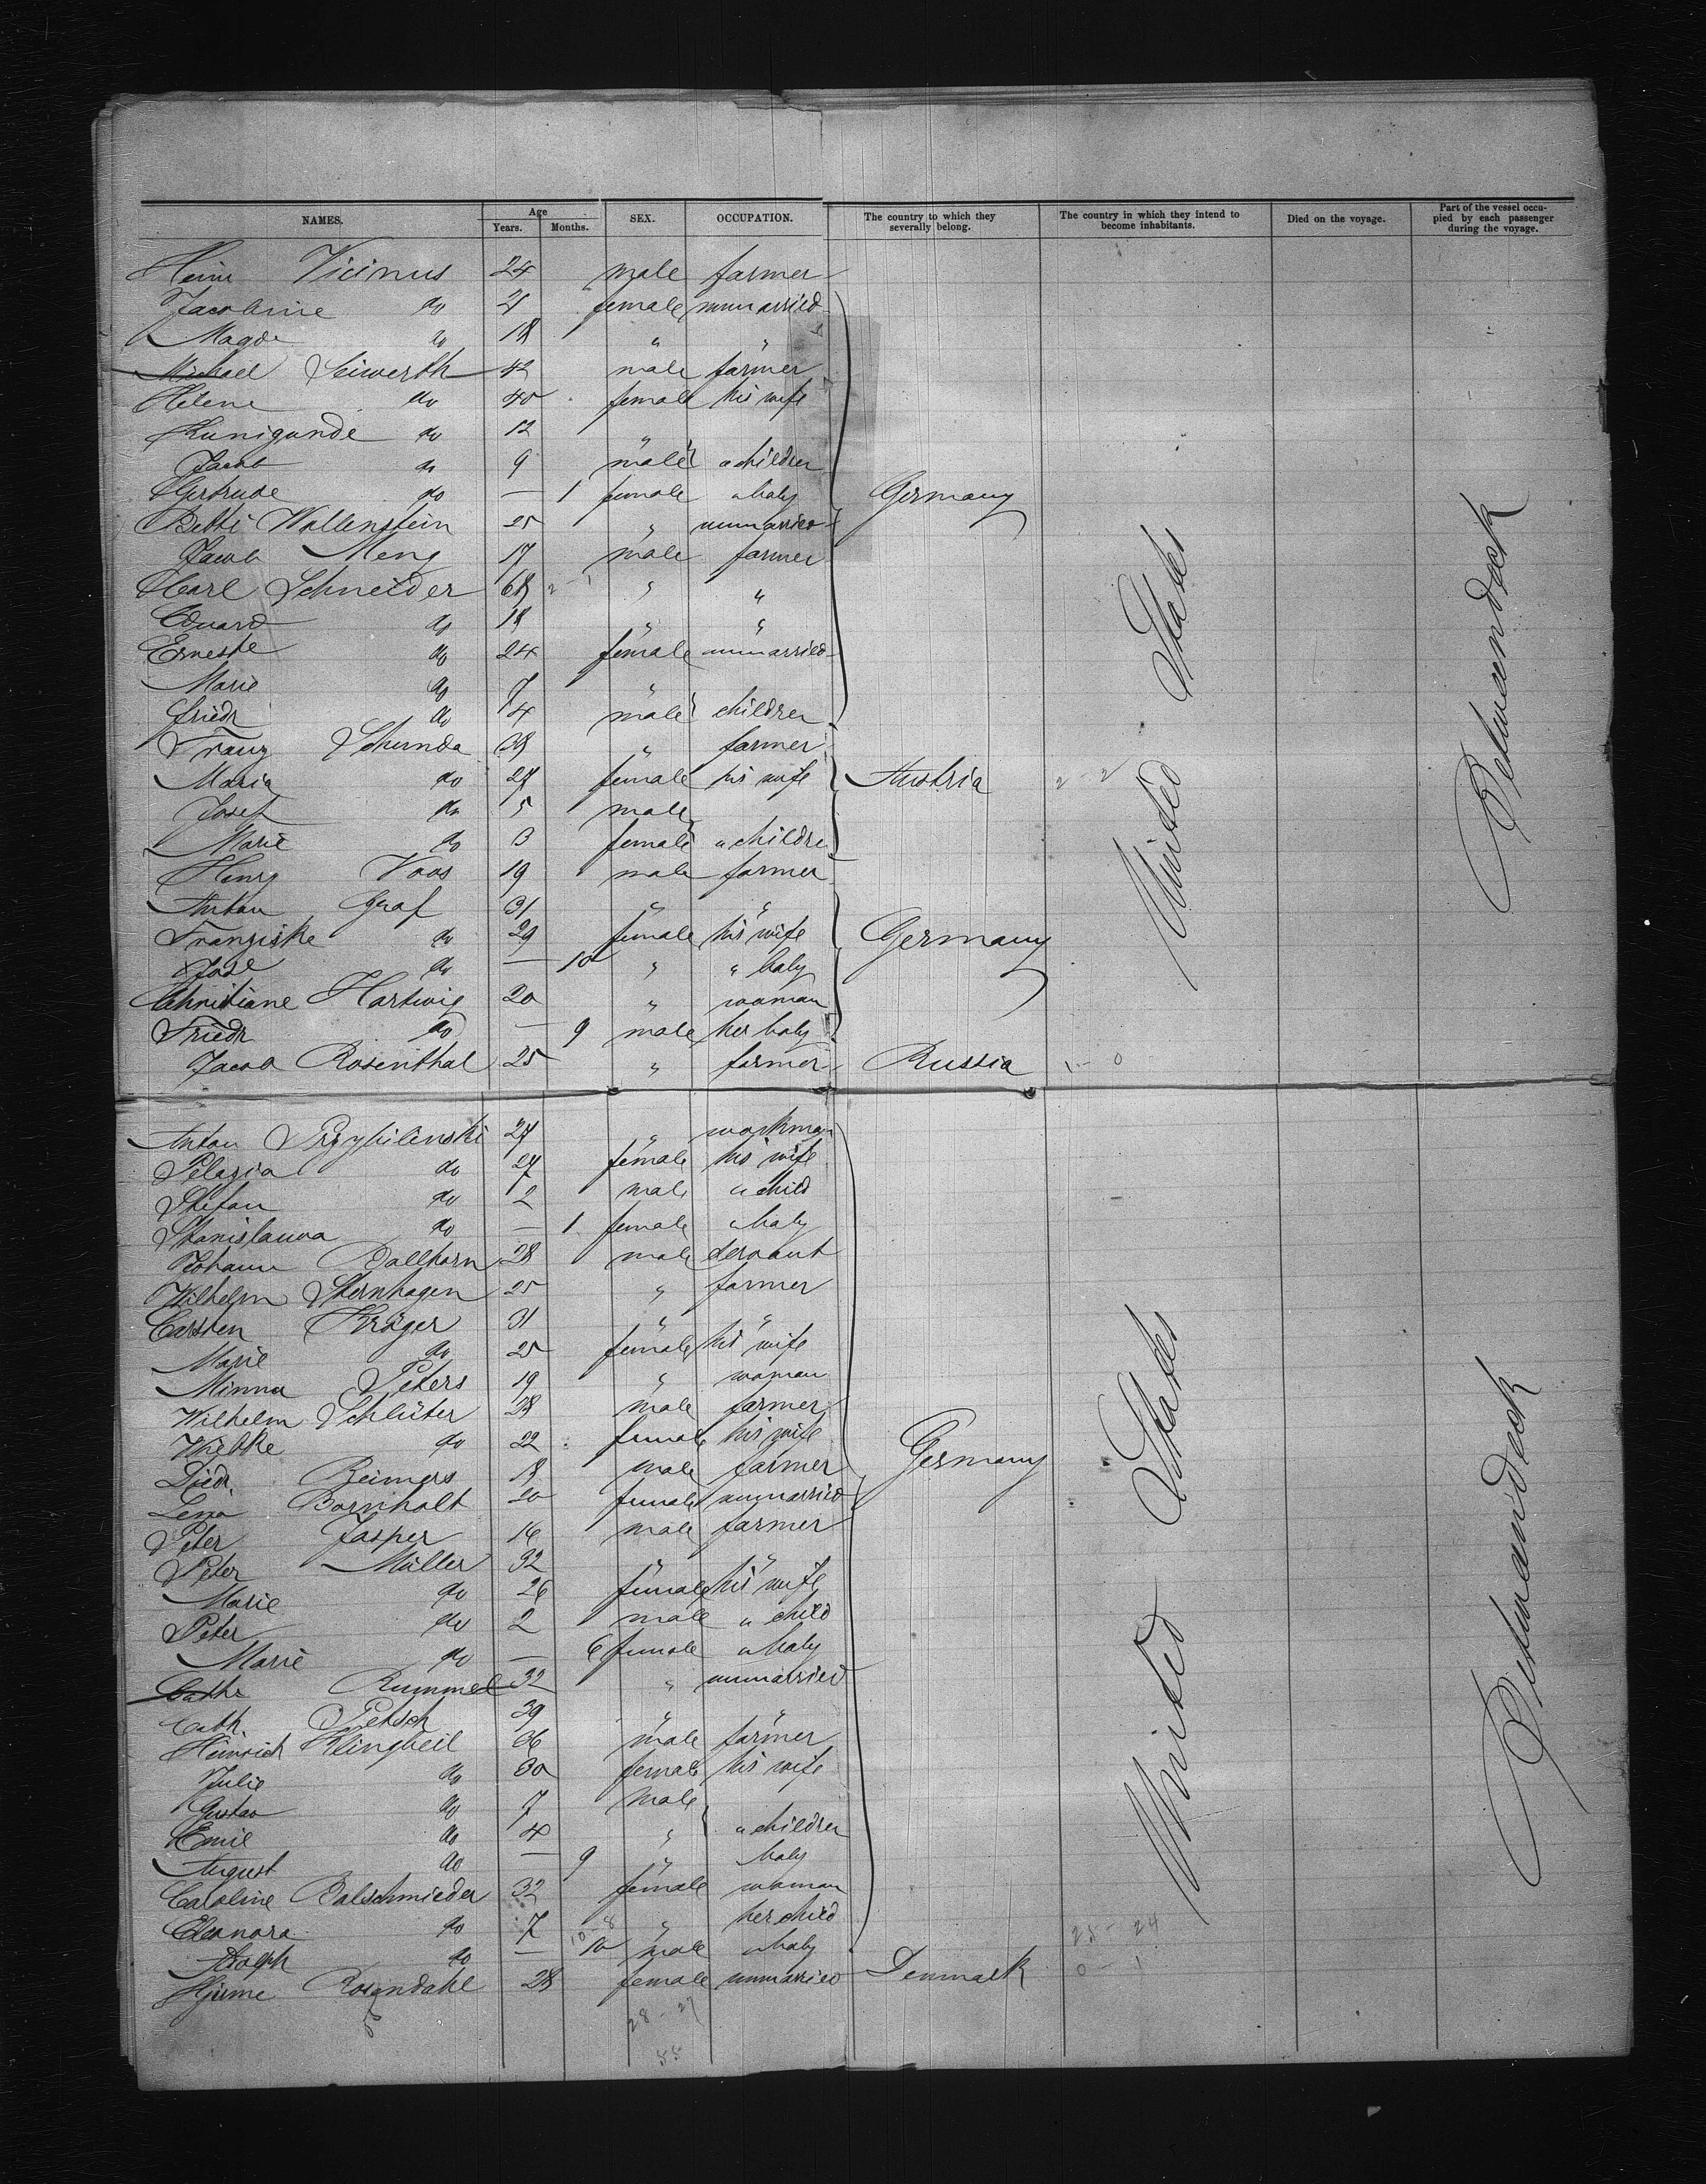 NAMES. Age Years. Months. SEX. OCCUPATION. The country to which they severally belong. The country in which they intend to become inhabitants. Died on the voyage. Part of the vessel occupied by each passenger during the voyage.
Heinr Vicinus 24 male farmer
Jacobine do 21 female unmarried
Magde do 18 " "
Michael Seiwerth 42 male farmer
Helene do 40 female his wife
Kunigunde do 12 "
Jacob do 9 male " children
Gertrude do — 1 female " baby Germany
Betti Wallenstein 25 " unmarried
Jacob Meng 17 male farmer
Carl Schneider 68 " "
Eduard do 18 " "
Erneste do 24 female unmarried
Marie do 7 "
Friedr do 4 male children
Franz Schunda 38 " farmer
Maria do 27 female his wife Austria 2 - 2
Josef do 5 male
Marie do 3 female " childre
Henry Voos 19 male farmer
Anton Graf 31 " "
Franziske do 29 female his wife Germany
do — 10 " " baby
Christiane Hartwig 20 " woman
Friedr do — 9 male her baby
Jacob Rosenthal 25 " farmer Russia 1 - 0
United States
Betweendeck
Anton Przybilinski 27 " workman
Pelagia do 27 female his wife
Stefan do 2 male " child
Stanislawa do — 1 female " baby
Johann Ballhorn 28 male servant
Wilhelm Sternhagen 25 " farmer
Carsten Kröger 31 " "
Marie do 25 female his wife
Minna Peters 19 " woman
Wilhelm Schlüter 28 male farmer
Wiebke do 22 female his wife
Diedr. Reimers 18 male farmer Germany
Lena Bornholt 20 female unmarried
Peter Jasper 16 male farmer
Peter Müller 32 " "
Marie do 26 female his wife
Peter do 2 male " child
Marie do — 6 female " baby
Cathe Rummel 32 " unmarried
Cath. Petsch 39 " "
Heinrich Klingbeil 36 male farmer
Julie do 30 female his wife
Gustav do 7 male
Emil do 4 " " children
August do — 9 " baby
Caroline Balschmieder 32 female woman
Eleonora do 7 " her child 25 - 24
Adolph do — 10 male " baby
Hjime Rosendahl 28 female unmarried Denmark 0 - 1
United States
Betweendeck
28 - 27
55